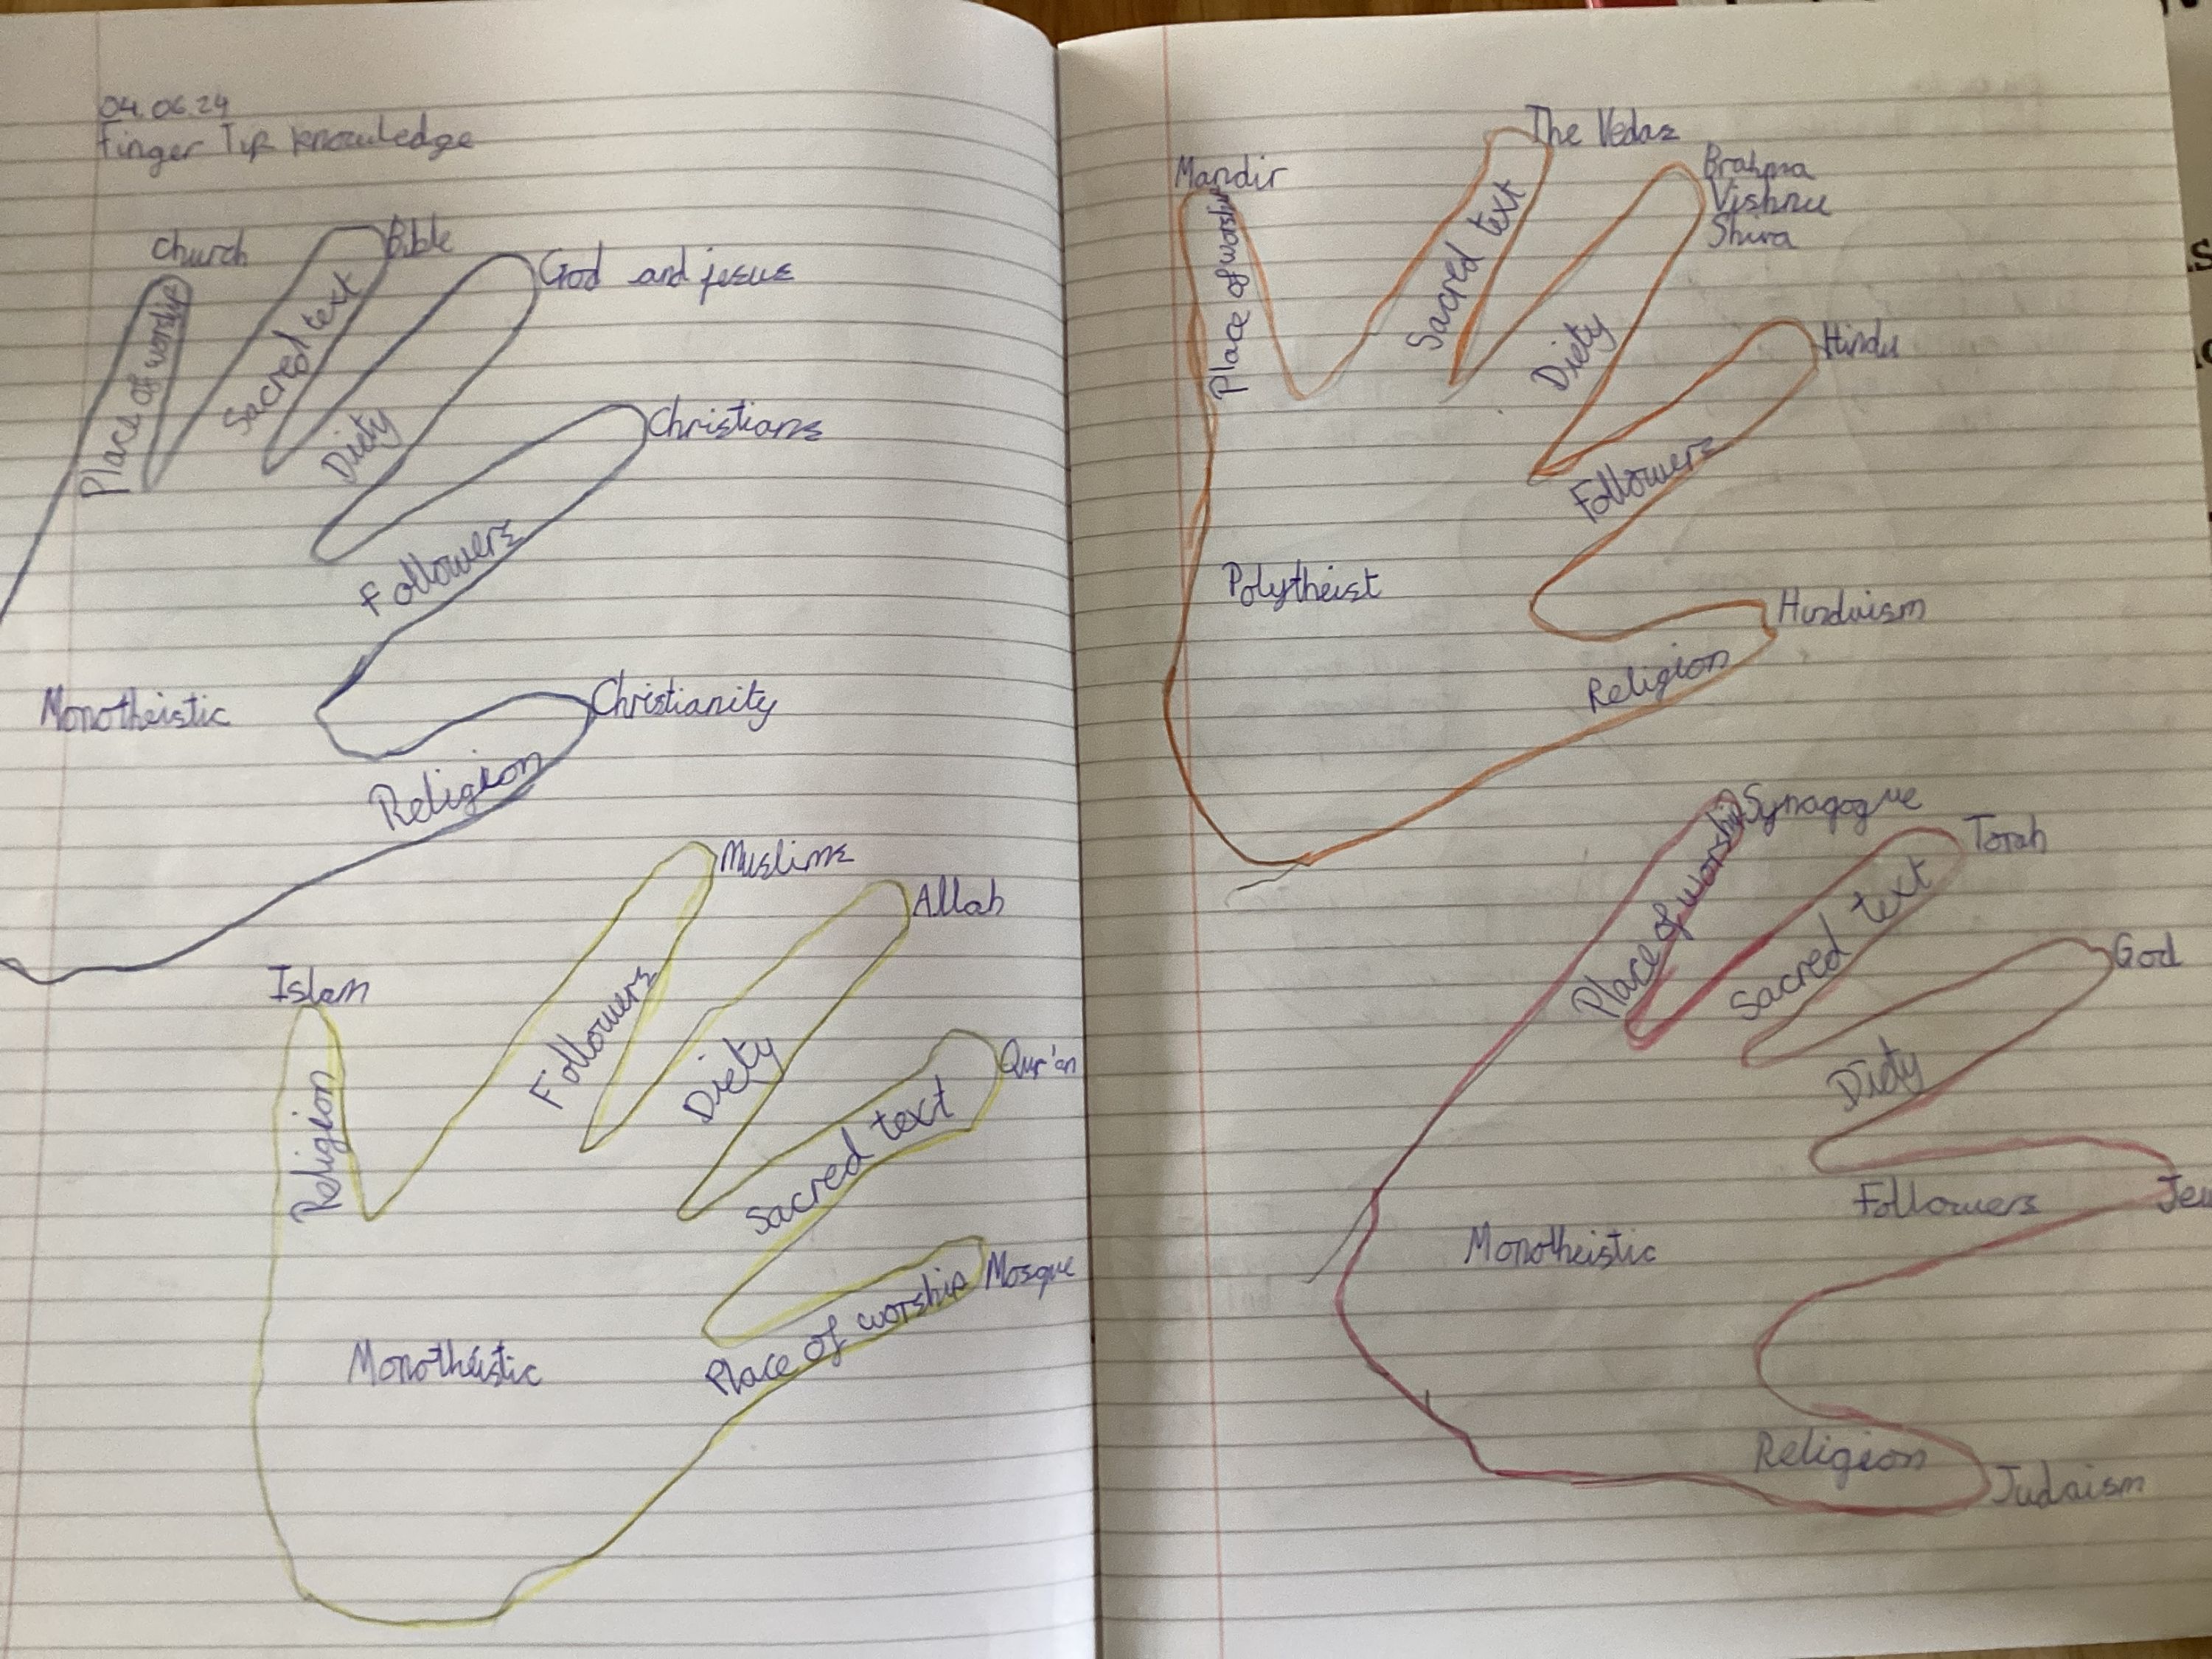 04.06.24
Finger Tip knowledge
Church
Place of worship
Bible
Sacred text
God and jesus
Diety
Christians
Followers
Christianity
Religion
Monotheistic
Islam
Religion
Muslims
Followers
Allah
Diety
Qur'an
Sacred text
Mosque
Place of worship
Monotheistic
Mandir
Place of worship
The Vedas
Sacred text
Brahma
Vishnu
Shiva
Diety
Hindu
Followers
Hinduism
Religion
Polytheist
Synagogue
Place of worship
Torah
Sacred text
God
Diety
Followers
Monotheistic
Religion
Judaism